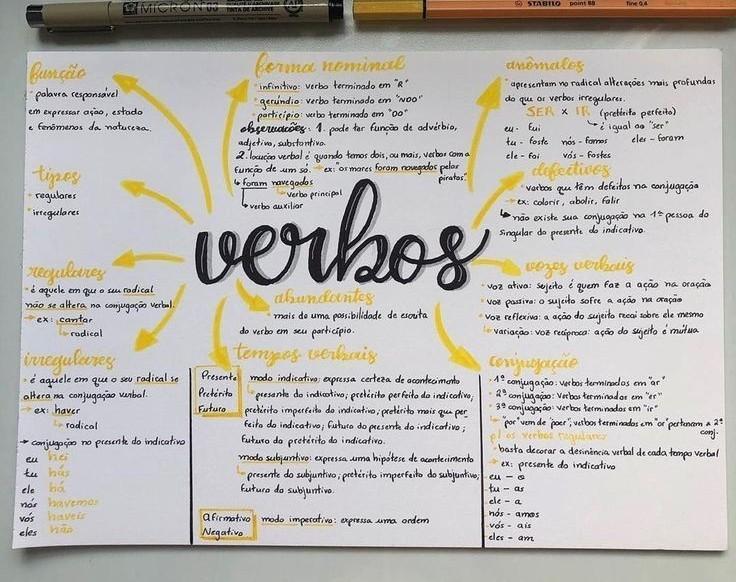 MICRON 03
STABILO point 88 fine 0,4
função
• palavra responsável
em expressar ação, estado
e fenômenos da natureza.
tipos
• regulares
• irregulares
regulares
• é aquele em que o seu radical
não se altera na conjugação verbal.
→ ex: cantar
radical
irregulares
• é aquele em que o seu radical se
altera na conjugação verbal.
→ ex: haver
radical
→ conjugação no presente do indicativo
eu hei
tu hás
ele há
nós havemos
vós haveis
eles hão
forma nominal
• infinitivo: verbo terminado em "R"
• gerúndio: verbo terminado em "NDO"
• particípio: verbo terminado em "DO"
observações: 1. pode ter função de advérbio,
adjetivo, substantivo.
2. locução verbal é quando temos dois, ou mais, verbos com a
função de um só. → ex: os mares foram navegados pelos
piratas."
foram navegados
verbo principal
verbo auxiliar
verbos
abundantes
mais de uma possibilidade de escrita
do verbo em seu particípio.
tempos verbais
Presente
Pretérito
Futuro
modo indicativo: expressa certeza do acontecimento
presente do indicativo; pretérito perfeito do indicativo;
pretérito imperfeito do indicativo; pretérito mais que per
feito do indicativo; futuro do presente do indicativo;
futuro do pretérito do indicativo.
modo subjuntivo: expressa uma hipótese de acontecimento
presente do subjuntivo; pretérito imperfeito do subjuntivo;
futuro do subjuntivo.
Afirmativo
Negativo
modo imperativo: expressa uma ordem
anômalos
• apresentam no radical alterações mais profundas
do que os verbos irregulares.
SER x IR (pretérito perfeito)
é igual ao "ser"
eu - fui
tu - foste nós - fomos eles - foram
ele - foi vós - fostes
defectivos
• verbos que têm defeitos na conjugação
→ ex: colorir, abolir, falir
não existe sua conjugação na 1ª pessoa do
singular do presente do indicativo.
vozes verbais
• voz ativa: sujeito é quem faz a ação na oração
• voz passiva: o sujeito sofre a ação na oração
• voz reflexiva: a ação do sujeito recai sobre ele mesmo
variação: voz recíproca: ação do sujeito é mútua
conjugação
• 1ª conjugação: verbos terminados em "ar"
• 2ª conjugação: verbos terminados em "er"
• 3ª conjugação: verbos terminados em "ir"
"por" vem de "poer", verbos terminados em "or" pertencem a 2ª
conj.
p/ os verbos regulares
• basta decorar a desinência verbal de cada tempo verbal
→ ex: presente do indicativo
- eu - o
- tu - as
- ele - a
- nós - amos
- vós - ais
- eles - am